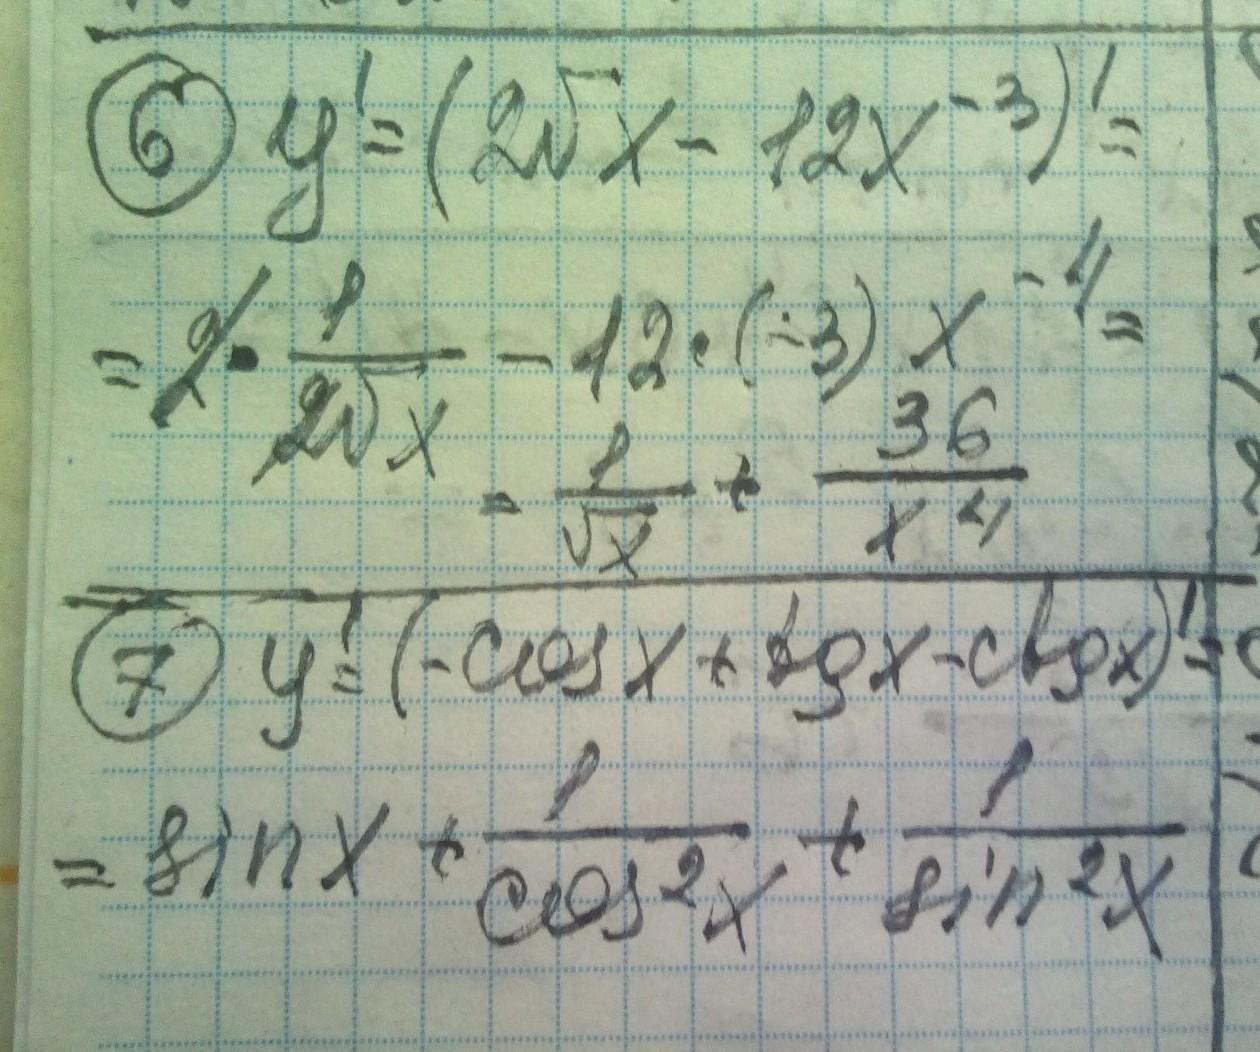 ⑥ y' = (2√x - 12x⁻³)' =
= 2 · 1/(2√x) - 12 · (-3) x⁻⁴ =
= 1/√x + 36/x⁴
⑦ y' = (-cos x + tg x - ctg x)' =
= sin x + 1/cos²x + 1/sin²x